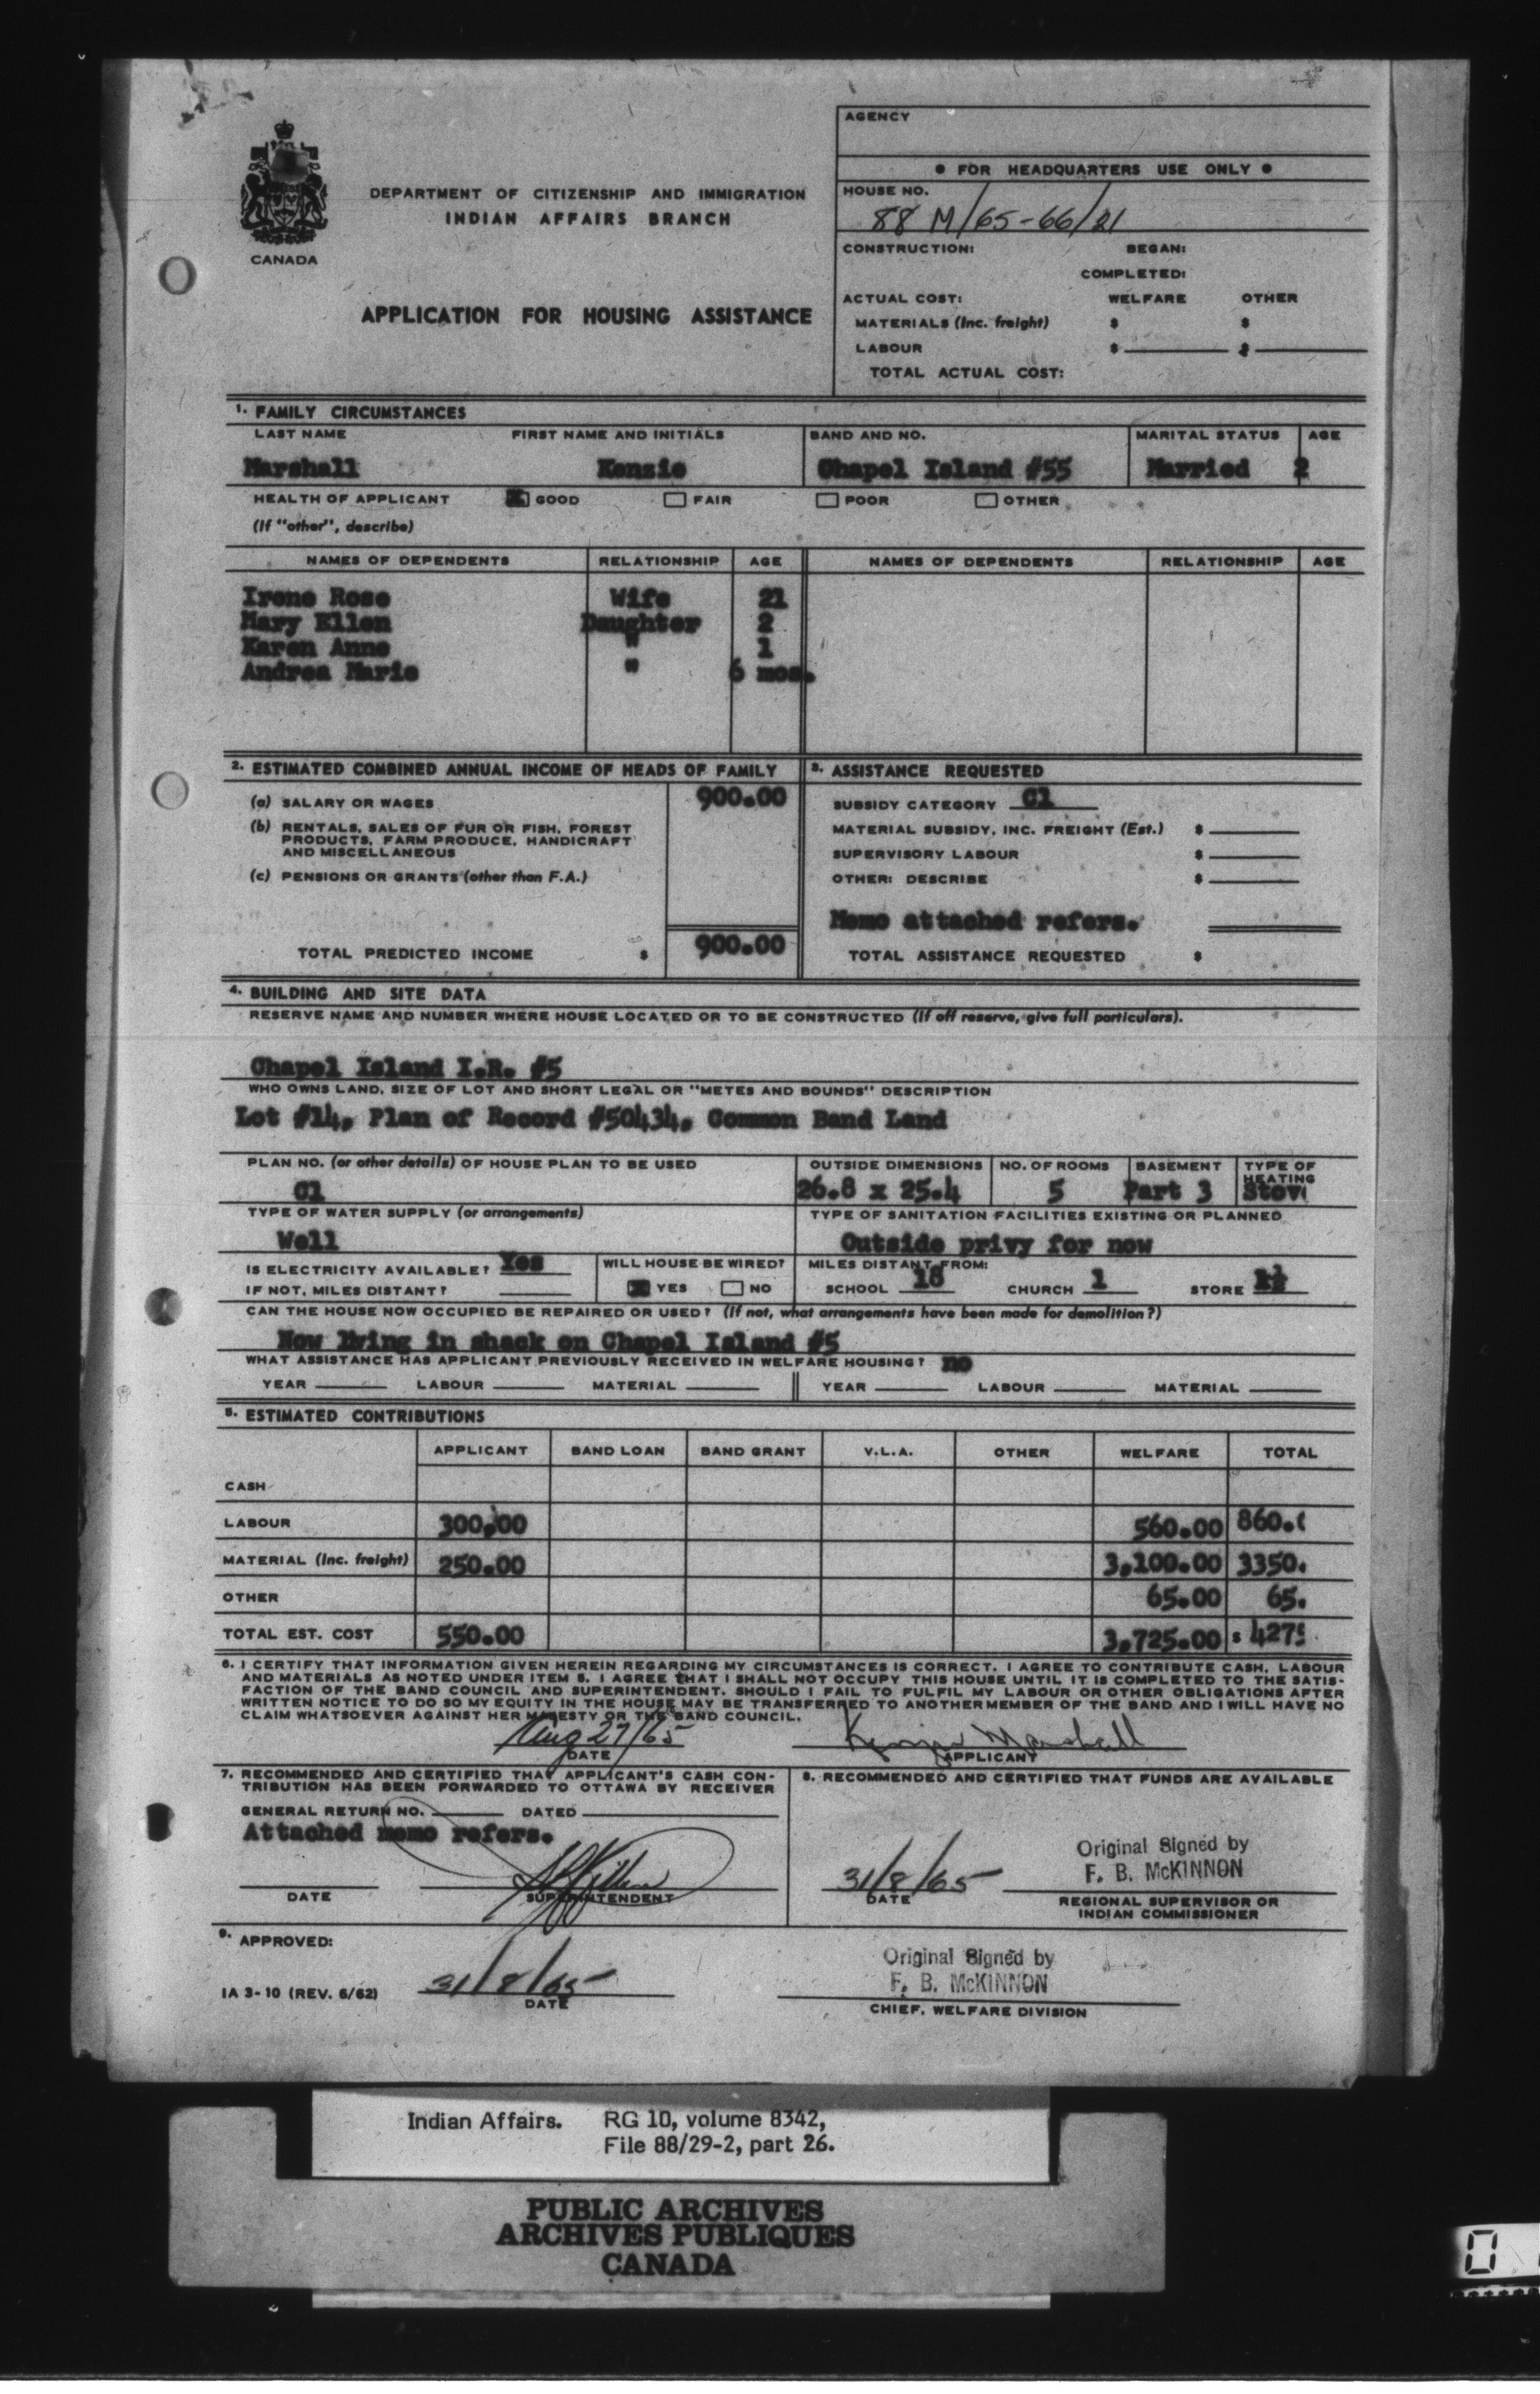 AGENCY
● FOR HEADQUARTERS USE ONLY ●
HOUSE NO.
88 M/65-66/21
CONSTRUCTION: BEGAN:
COMPLETED:
ACTUAL COST: WELFARE OTHER
MATERIALS (Inc. freight) $ $
LABOUR $ $
TOTAL ACTUAL COST:
CANADA
DEPARTMENT OF CITIZENSHIP AND IMMIGRATION
INDIAN AFFAIRS BRANCH
APPLICATION FOR HOUSING ASSISTANCE
1. FAMILY CIRCUMSTANCES
LAST NAME FIRST NAME AND INITIALS BAND AND NO. MARITAL STATUS AGE
Marshall Kenzie Chapel Island #55 Married 2
HEALTH OF APPLICANT GOOD FAIR POOR OTHER
(If "other", describe)
NAMES OF DEPENDENTS RELATIONSHIP AGE NAMES OF DEPENDENTS RELATIONSHIP AGE
Irene Rose Wife 21
Mary Ellen Daughter 2
Karen Anne " 1
Andrea Marie " 6 mos.
2. ESTIMATED COMBINED ANNUAL INCOME OF HEADS OF FAMILY
(a) SALARY OR WAGES 900.00
(b) RENTALS, SALES OF FUR OR FISH, FOREST
PRODUCTS, FARM PRODUCE, HANDICRAFT
AND MISCELLANEOUS
(c) PENSIONS OR GRANTS (other than F.A.)
TOTAL PREDICTED INCOME $ 900.00
3. ASSISTANCE REQUESTED
SUBSIDY CATEGORY C1
MATERIAL SUBSIDY, INC. FREIGHT (Est.) $
SUPERVISORY LABOUR $
OTHER: DESCRIBE $
Memo attached refers.
TOTAL ASSISTANCE REQUESTED $
4. BUILDING AND SITE DATA
RESERVE NAME AND NUMBER WHERE HOUSE LOCATED OR TO BE CONSTRUCTED (If off reserve, give full particulars).
Chapel Island I.R. #5
WHO OWNS LAND, SIZE OF LOT AND SHORT LEGAL OR "METES AND BOUNDS" DESCRIPTION
Lot #14, Plan of Record #50434, Common Band Land
PLAN NO. (or other details) OF HOUSE PLAN TO BE USED OUTSIDE DIMENSIONS NO. OF ROOMS BASEMENT TYPE OF HEATING
C1 26.8 x 25.4 5 Part 3 Stove
TYPE OF WATER SUPPLY (or arrangements) TYPE OF SANITATION FACILITIES EXISTING OR PLANNED
Well Outside privy for now
IS ELECTRICITY AVAILABLE? Yes WILL HOUSE BE WIRED? MILES DISTANT FROM:
IF NOT, MILES DISTANT? YES NO SCHOOL 18 CHURCH 1 STORE 1½
CAN THE HOUSE NOW OCCUPIED BE REPAIRED OR USED? (If not, what arrangements have been made for demolition?)
Now lving in shack on Chapel Island #5
WHAT ASSISTANCE HAS APPLICANT PREVIOUSLY RECEIVED IN WELFARE HOUSING? no
YEAR LABOUR MATERIAL YEAR LABOUR MATERIAL
5. ESTIMATED CONTRIBUTIONS
APPLICANT BAND LOAN BAND GRANT V.L.A. OTHER WELFARE TOTAL
CASH
LABOUR 300.00 560.00 860.
MATERIAL (Inc. freight) 250.00 3,100.00 3350.
OTHER 65.00 65.
TOTAL EST. COST 550.00 3,725.00 $ 4275
6. I CERTIFY THAT INFORMATION GIVEN HEREIN REGARDING MY CIRCUMSTANCES IS CORRECT. I AGREE TO CONTRIBUTE CASH, LABOUR
AND MATERIALS AS NOTED UNDER ITEM 5. I AGREE THAT I SHALL NOT OCCUPY THIS HOUSE UNTIL IT IS COMPLETED TO THE SATIS-
FACTION OF THE BAND COUNCIL AND SUPERINTENDENT. SHOULD I FAIL TO FULFIL MY LABOUR OR OTHER OBLIGATIONS AFTER
WRITTEN NOTICE TO DO SO MY EQUITY IN THE HOUSE MAY BE TRANSFERRED TO ANOTHER MEMBER OF THE BAND AND I WILL HAVE NO
CLAIM WHATSOEVER AGAINST HER MAJESTY OR THE BAND COUNCIL.
Aug 27/65 Kenzie Marshall
DATE APPLICANT
7. RECOMMENDED AND CERTIFIED THAT APPLICANT'S CASH CON-
TRIBUTION HAS BEEN FORWARDED TO OTTAWA BY RECEIVER
GENERAL RETURN NO. DATED
Attached memo refers.
DATE SUPERINTENDENT
8. RECOMMENDED AND CERTIFIED THAT FUNDS ARE AVAILABLE
Original Signed by
F. B. McKINNON
31/8/65
DATE REGIONAL SUPERVISOR OR
INDIAN COMMISSIONER
9. APPROVED:
Original Signed by
F. B. McKINNON
IA 3-10 (REV. 6/62) 31/8/65
DATE CHIEF, WELFARE DIVISION
Indian Affairs. RG 10, volume 8342,
File 88/29-2, part 26.
PUBLIC ARCHIVES
ARCHIVES PUBLIQUES
CANADA
0